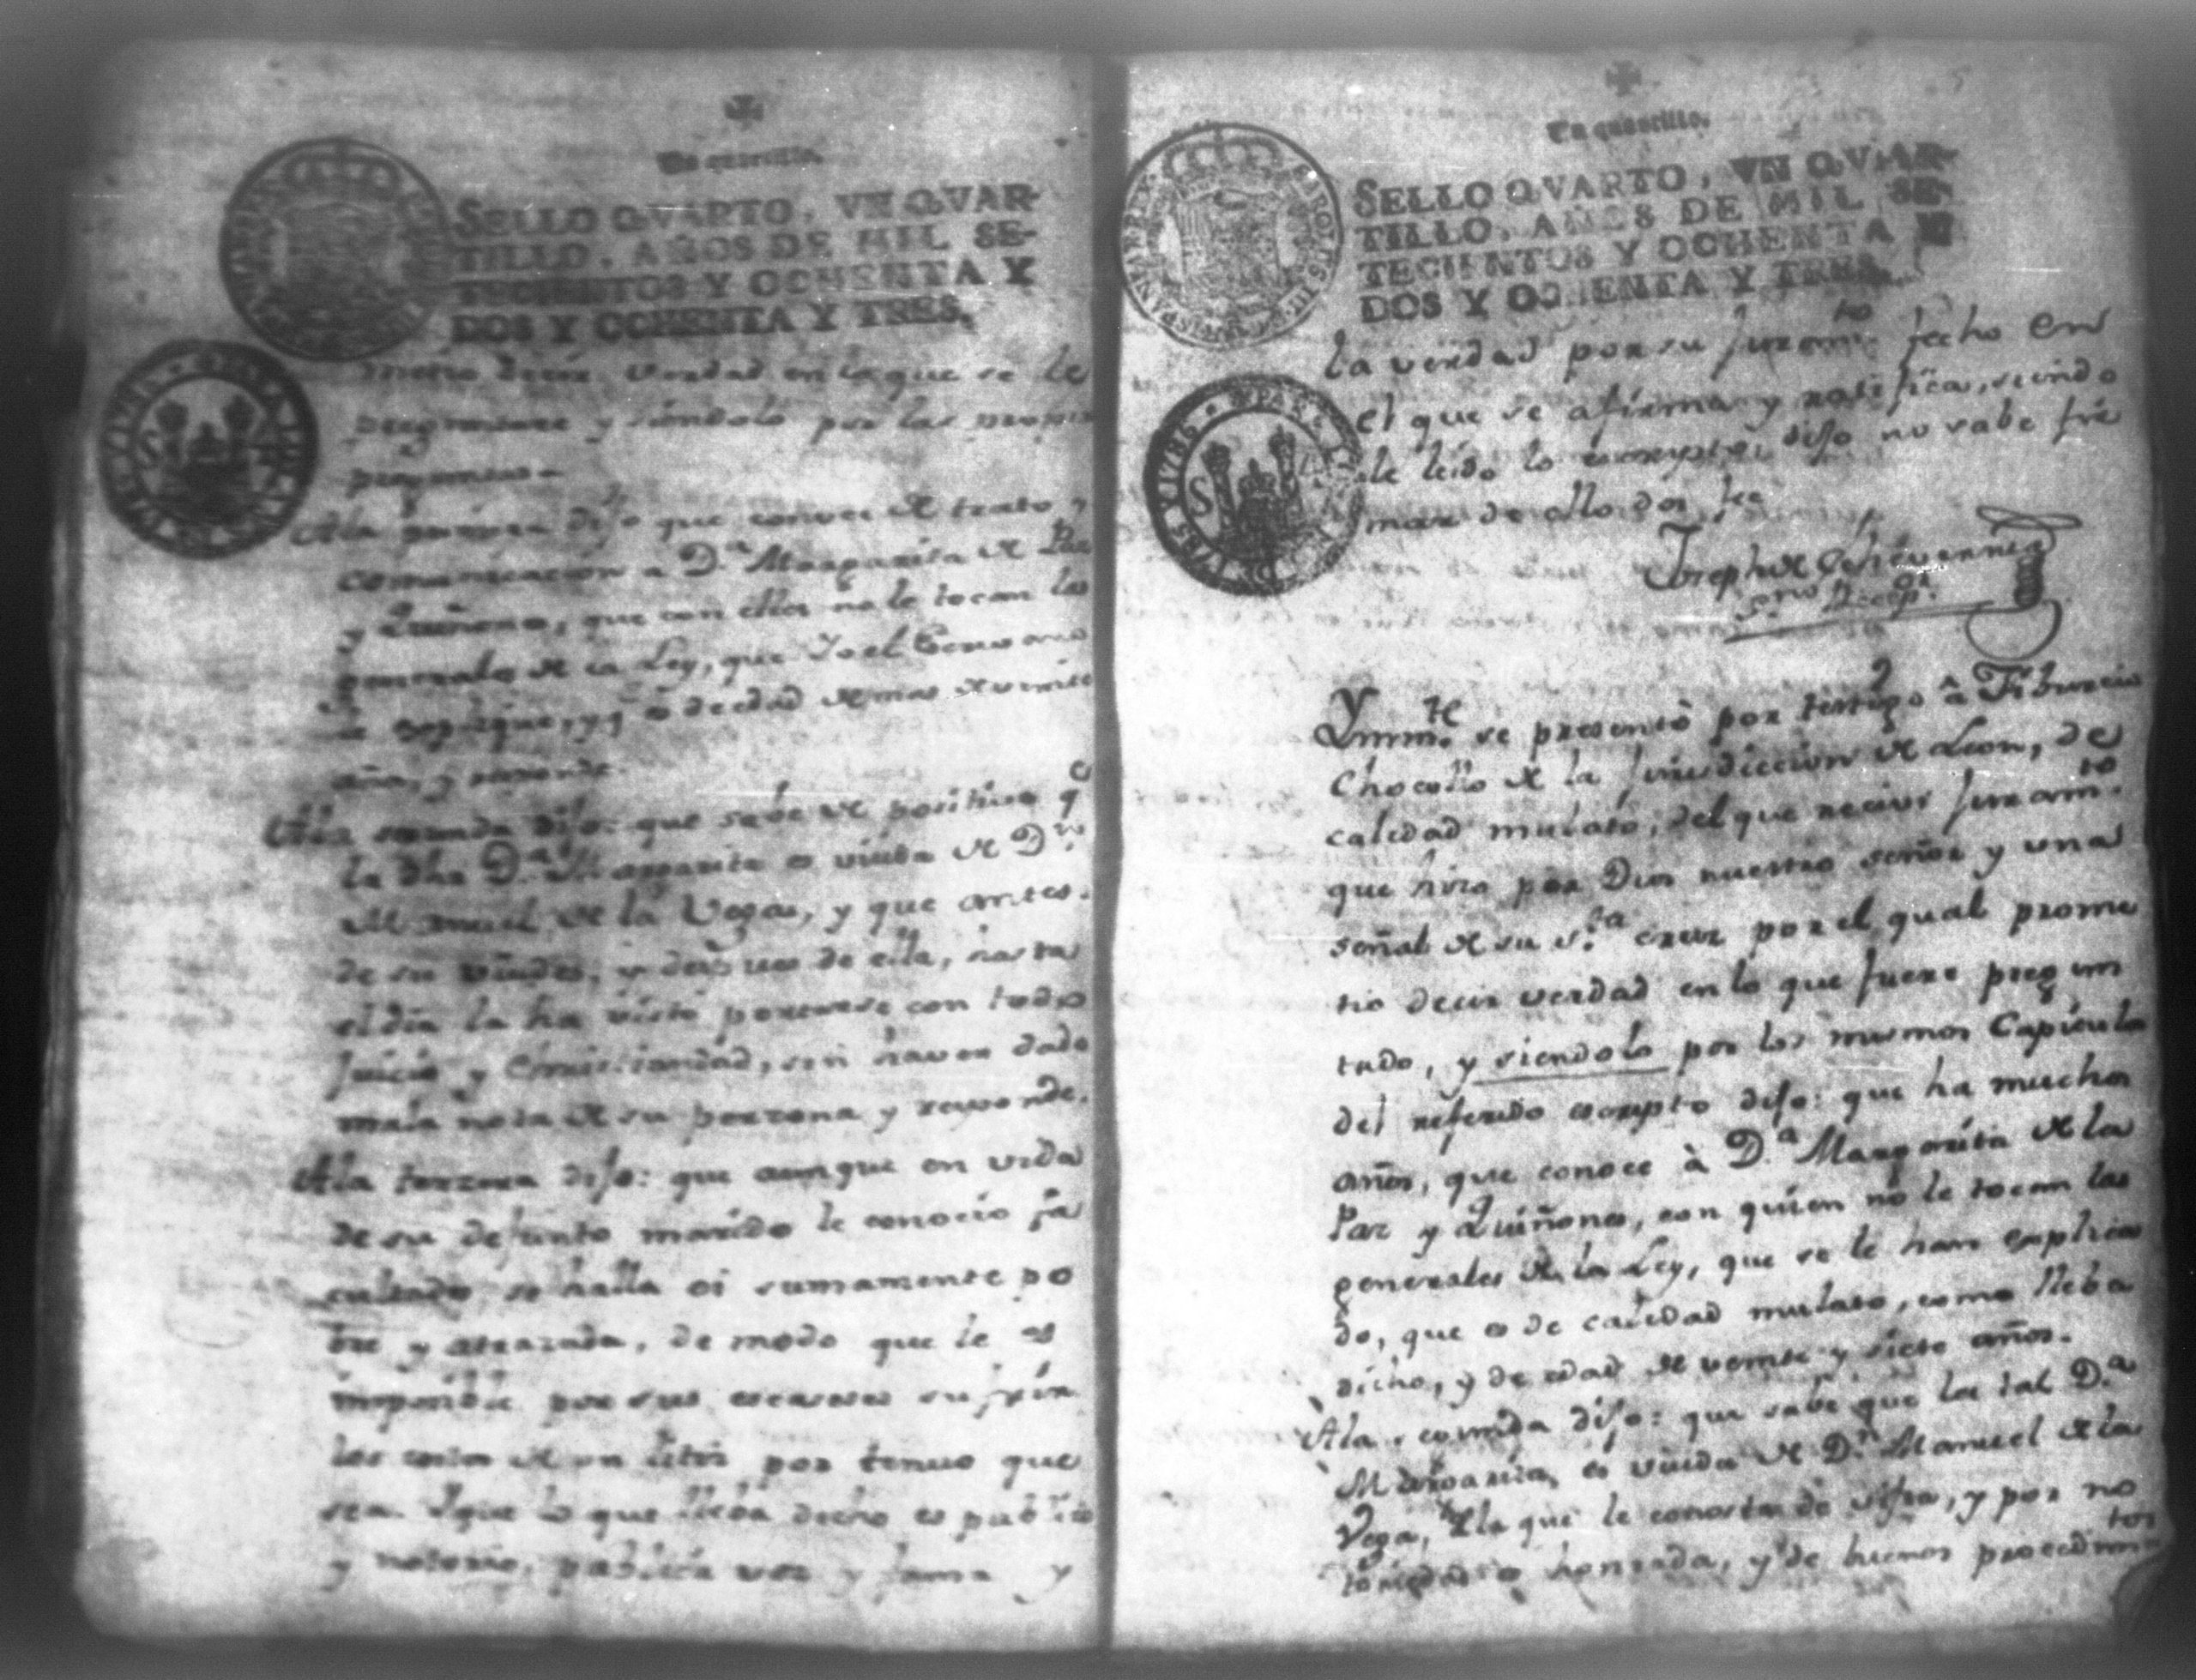 Un quartillo.
SELLO QVARTO, VN QVAR-
TILLO, AÑOS DE MIL SE-
TECIENTOS Y OCHENTA Y
DOS Y OCHENTA Y TRES.
metio decir verdad en lo que se le
preguntare y siendolo por las
preguntas-
A la primera dijo que conoce de trato y
comunicacion a D.ª Margarita de Paz
y Quiñones, que con ella no le tocan las
generales de la Ley, que Yo el
le explique, y q es de edad de mas de veinte
años, y responde.
A la segunda dijo: que save de positivo q
la dha D.ª Margarita es viuda de D.n
Manuel de la Vega, y que antes
de su viudes, y despues de ella, hasta
el dia la ha visto portarse con todo
juicio y Christiandad, sin haver dado
mala nota de su persona y responde.
A la tercera dijo: que aunque en vida
de su defunto marido le conocio fa
cultades se halla oi sumamente po
bre y atrazada, de modo que le es
imposible por sus escaseses sufrir
los costos de un litis por tenue que
sea. Y que lo que lleba dicho es publico
y notorio, publica voz y fama y
Un quartillo.
SELLO QVARTO, VN QVAR-
TILLO, AÑOS DE MIL SE-
TECIENTOS Y OCHENTA Y
DOS Y OCHENTA Y TRES.
la verdad por su juram.to fecho en
el que se afirma y ratifica, siendo
le leido lo escripto, dijo no sabe fir
mar de ello doi fee
Joseph de Echeverria
Ynm.te se presentò por testigo â Tiburcio
Chocollo de la jurisdiccion de Leon, de
calidad mulato, del que recivi juram.to
que hizo por Dios nuestro señor y una
señal de su s.ta cruz por el qual prome
tio decir verdad en lo que fuere pregun
tado, y siendolo por los mismos Capitulos
del referido escripto dijo: que ha muchos
años, que conoce à D.ª Margarita de la
Paz y Quiñones, con quien no le tocan las
generales de la Ley, que se le han explica
do, que es de calidad mulato, como lleba
dicho, y de edad de veinte y siete años.
A la segunda dijo: que sabe que la tal D.ª
Margarita, es viuda de D.n Manuel de la
Vega, de la que le consta de vista, y por no
toriedad es honrada, y de buenos procedim.tos